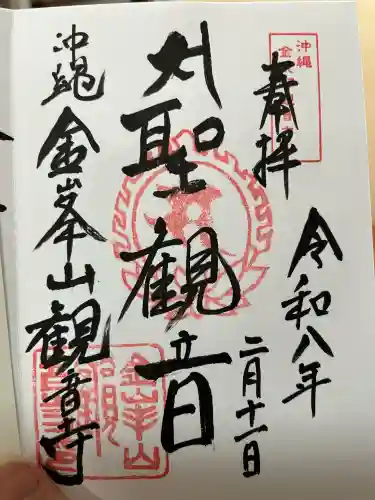 沖縄
奉拝
令和八年
二月十一日
大聖観音
沖縄
金峯山観音寺